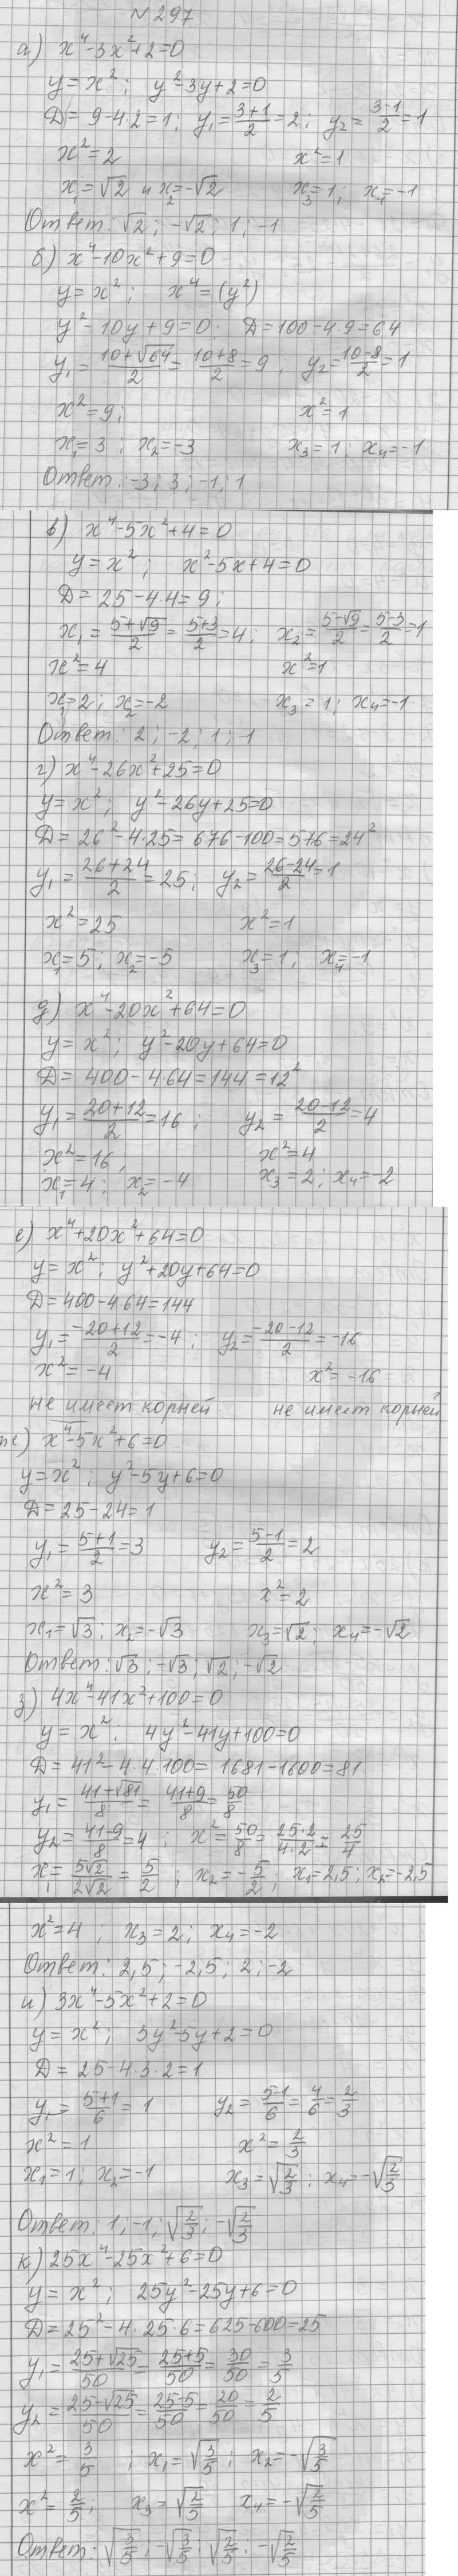 №297
а) x⁴-3x²+2=0
y=x²; y²-3y+2=0
D=9-4·2=1; y₁=(3+1)/2=2; y₂=(3-1)/2=1
x²=2 x²=1
x₁=√2 и x₂=-√2 x₃=1; x₄=-1
Ответ: √2; -√2; 1; -1
б) x⁴-10x²+9=0
y=x²; x⁴=(y²)
y²-10y+9=0; D=100-4·9=64
y₁=(10+√64)/2=(10+8)/2=9; y₂=(10-8)/2=1
x²=9; x²=1
x₁=3; x₂=-3 x₃=1; x₄=-1
Ответ: -3; 3; -1; 1
в) x⁴-5x²+4=0
y=x²; x²-5x+4=0
D=25-4·4=9;
x₁=(5+√9)/2=(5+3)/2=4; x₂=(5-√9)/2=(5-3)/2=1
x²=4 x²=1
x₁=2; x₂=-2 x₃=1; x₄=-1
Ответ: 2; -2; 1; -1
г) x⁴-26x²+25=0
y=x²; y²-26y+25=0
D=26²-4·25=676-100=576=24²
y₁=(26+24)/2=25; y₂=(26-24)/2=1
x²=25 x²=1
x₁=5; x₂=-5 x₃=1; x₄=-1
д) x⁴-20x²+64=0
y=x²; y²-20y+64=0
D=400-4·64=144=12²
y₁=(20+12)/2=16; y₂=(20-12)/2=4
x²=16, x²=4
x₁=4; x₂=-4 x₃=2; x₄=-2
е) x⁴+20x²+64=0
y=x²; y²+20y+64=0
D=400-4·64=144
y₁=(-20+12)/2=-4; y₂=(-20-12)/2=-16
x²=-4 x²=-16
не имеет корней не имеет корней
ж) x⁴-5x²+6=0
y=x²; y²-5y+6=0
D=25-24=1
y₁=(5+1)/2=3 y₂=(5-1)/2=2
x²=3 x²=2
x₁=√3; x₂=-√3 x₃=√2; x₄=-√2
Ответ: √3; -√3; √2; -√2
з) 4x⁴-41x²+100=0
y=x²; 4y²-41y+100=0
D=41²-4·4·100=1681-1600=81
y₁=(41+√81)/8=(41+9)/8=50/8
y₂=(41-9)/8=4; x²=50/8=(25·2)/(4·2)=25/4
x₁=5√2/2√2=5/2; x₂=-5/2; x₁=2,5; x₂=-2,5
x²=4, x₃=2; x₄=-2
Ответ: 2,5; -2,5; 2; -2
и) 3x⁴-5x²+2=0
y=x²; 3y²-5y+2=0
D=25-4·3·2=1
y₁=(5+1)/6=1 y₂=(5-1)/6=4/6=2/3
x²=1 x²=2/3
x₁=1; x₂=-1 x₃=√(2/3); x₄=-√(2/3)
Ответ: 1; -1; √(2/3); -√(2/3)
к) 25x⁴-25x²+6=0
y=x²; 25y²-25y+6=0
D=25²-4·25·6=625-600=25
y₁=(25+√25)/50=(25+5)/50=30/50=3/5
y₂=(25-√25)/50=(25-5)/50=20/50=2/5
x²=3/5; x₁=√(3/5); x₂=-√(3/5)
x²=2/5; x₃=√(2/5) x₄=-√(2/5)
Ответ: √(3/5); -√(3/5); √(2/5); -√(2/5)